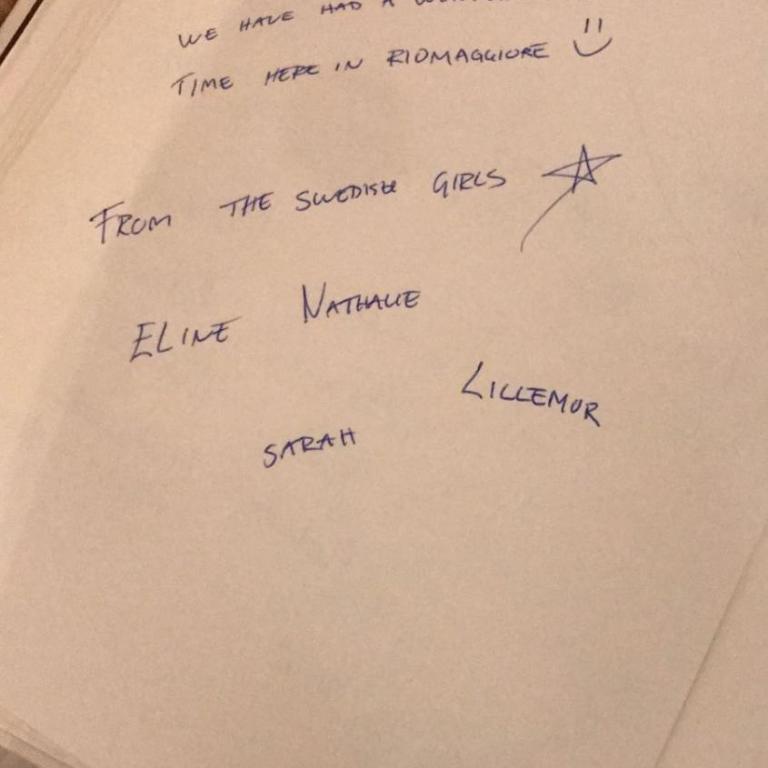 WE HAVE HAD A
TIME HERE IN RIOMAGGIORE
FROM THE SWEDISH GIRLS
ELINE NATHALIE
LILLEMOR
SARAH